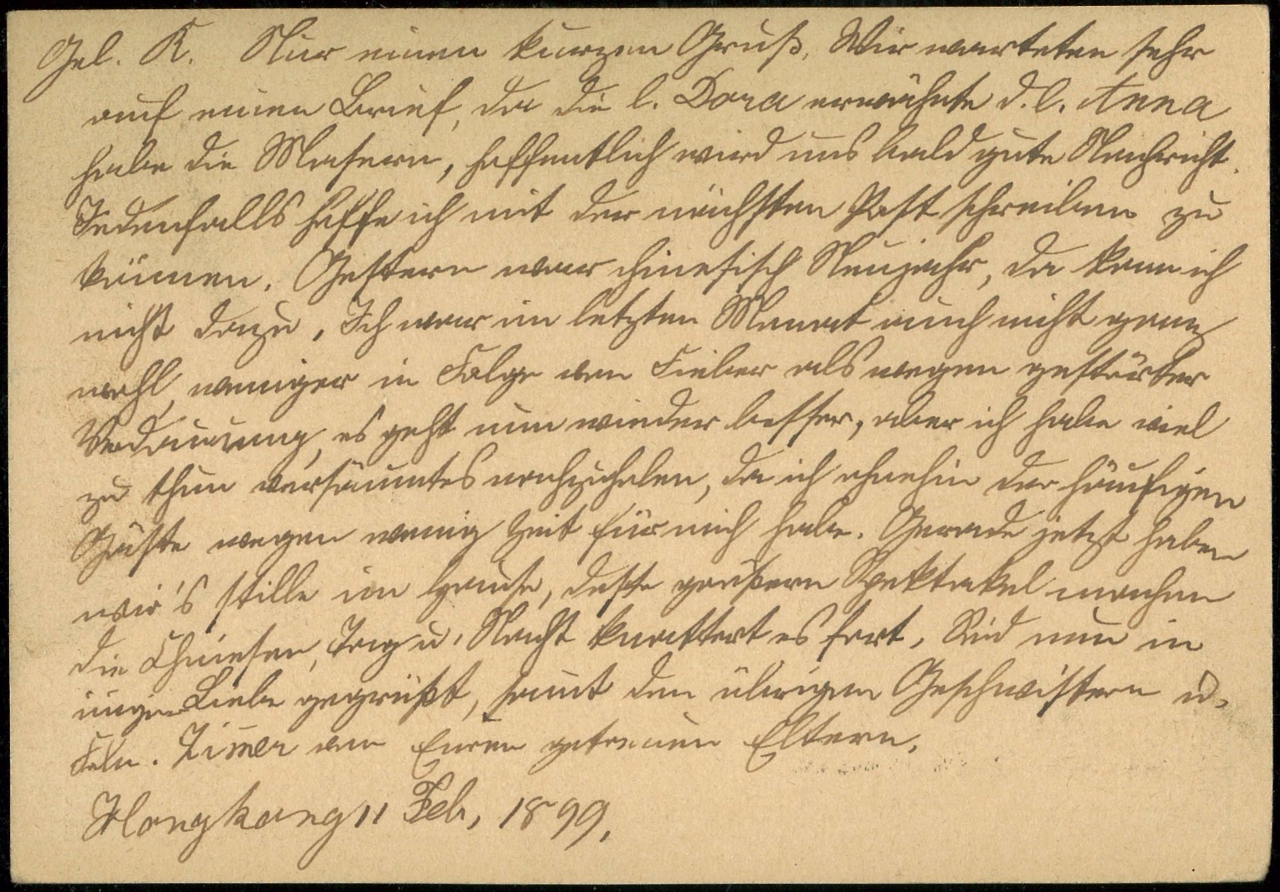 Gel. K. Nur einen kurzen Gruß. Wir warteten sehr
auf einen Brief, da die l. Dora erwähnte d. l. Anna
habe die Masern, hoffentlich wird uns bald gute Nachricht.
Jedenfalls hoffe ich mit der nächsten Post schreiben zu
können. Gestern war chinesisch Neujahr, da kam ich
nicht dazu. Ich war im letzten Monat auch nicht ganz
wohl, weniger in Folge von Fieber als wegen gestörter
Verdauung, es geht nun wieder besser, aber ich habe viel
zu thun versäumtes nachzuholen, da ich ohnehin der häufigen
Gäste wegen wenig Zeit für mich habe. Gerade jetzt haben
wir's stille im Hause, desto größern Spektakel machen
die Chinesen, Tag u. Nacht knattert es fort. Seid nun in
inniger Liebe gegrüßt, samt den übrigen Geschwistern u.
Frln. Zimer von Euren getreuen Eltern.
Hongkong 11 Feb, 1899.